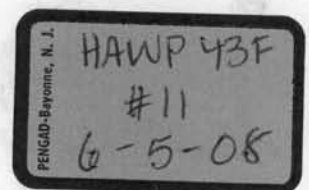 PENGAD-Bayonne, N. J.
HAWP 43F
#11
6-5-08